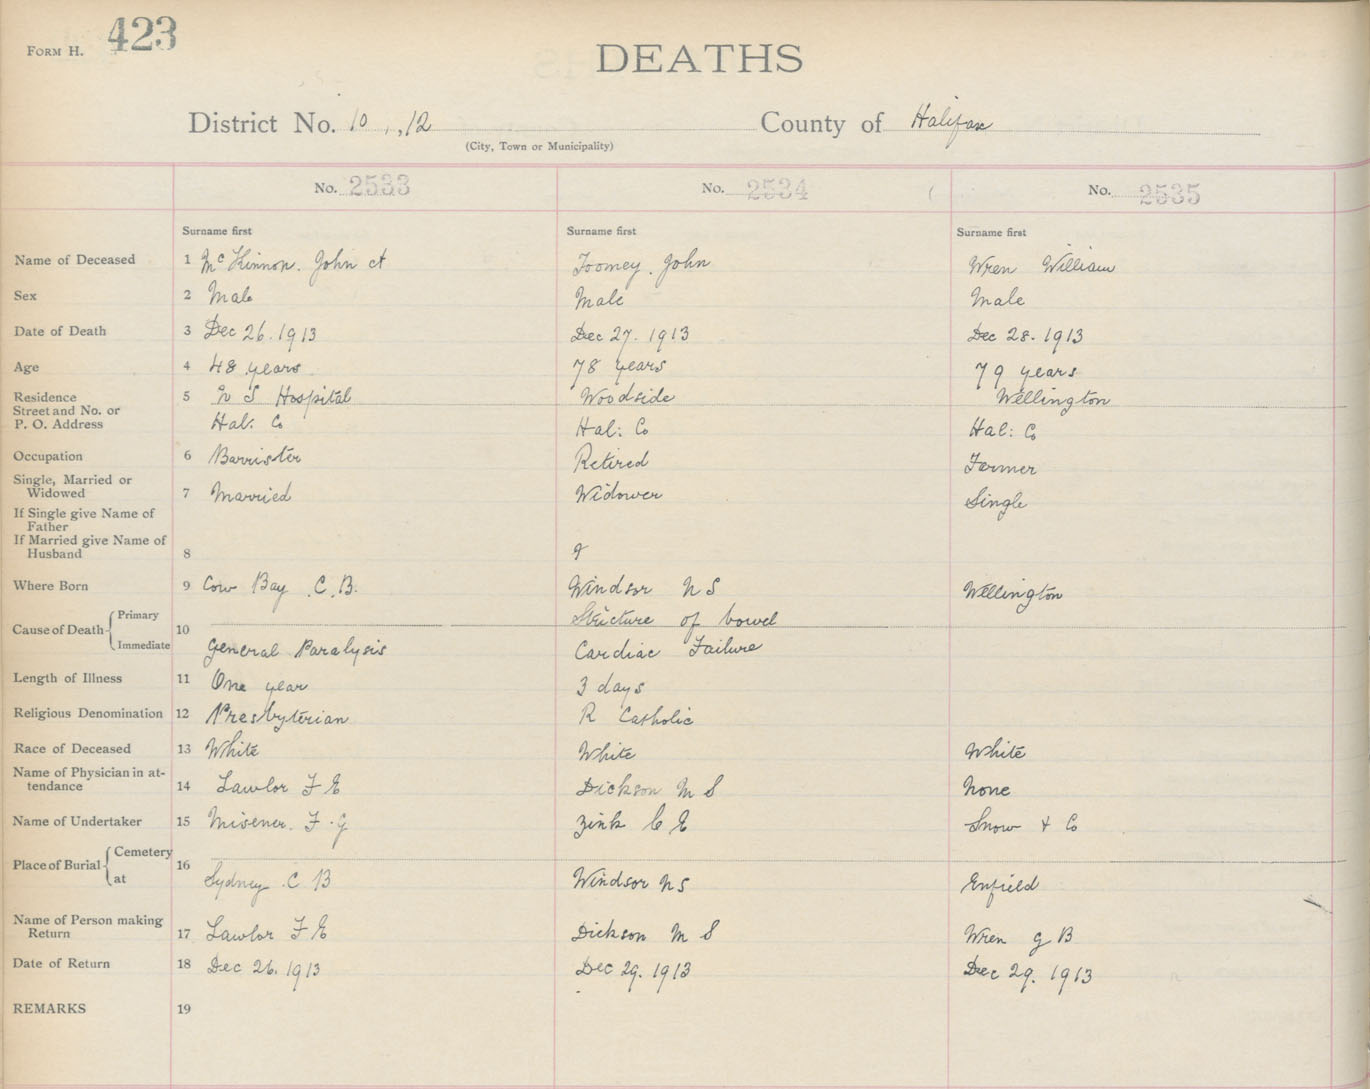 FORM H. 423
DEATHS
District No. 10,, 12 County of Halifax
(City, Town or Municipality)
No. 2533 No. 2534 No. 2535
Surname first Surname first Surname first
Name of Deceased 1 McKinnon. John A Toomey. John Wren William
Sex 2 Male Male Male
Date of Death 3 Dec 26. 1913 Dec 27. 1913 Dec 28. 1913
Age 4 48 years 78 years 79 years
Residence 5 N S Hospital Woodside Wellington
Street and No. or
P. O. Address Hal: Co Hal: Co Hal: Co
Occupation 6 Barrister Retired Farmer
Single, Married or
Widowed 7 Married Widower Single
If Single give Name of
Father
If Married give Name of
Husband 8
Where Born 9 Cow Bay C.B. Windsor N S Wellington
Cause of Death Primary 10 Stricture of bowel
Immediate General Paralysis Cardiac Failure
Length of Illness 11 One year 3 days
Religious Denomination 12 Presbyterian R Catholic
Race of Deceased 13 White White White
Name of Physician in at-
tendance 14 Lawlor F E Dickson M S None
Name of Undertaker 15 Misener. F. G Zink C E Snow + Co
Place of Burial Cemetery 16
at Sydney C B Windsor NS Enfield
Name of Person making
Return 17 Lawlor F E Dickson M S Wren G B
Date of Return 18 Dec 26. 1913 Dec 29. 1913 Dec 29. 1913
REMARKS 19